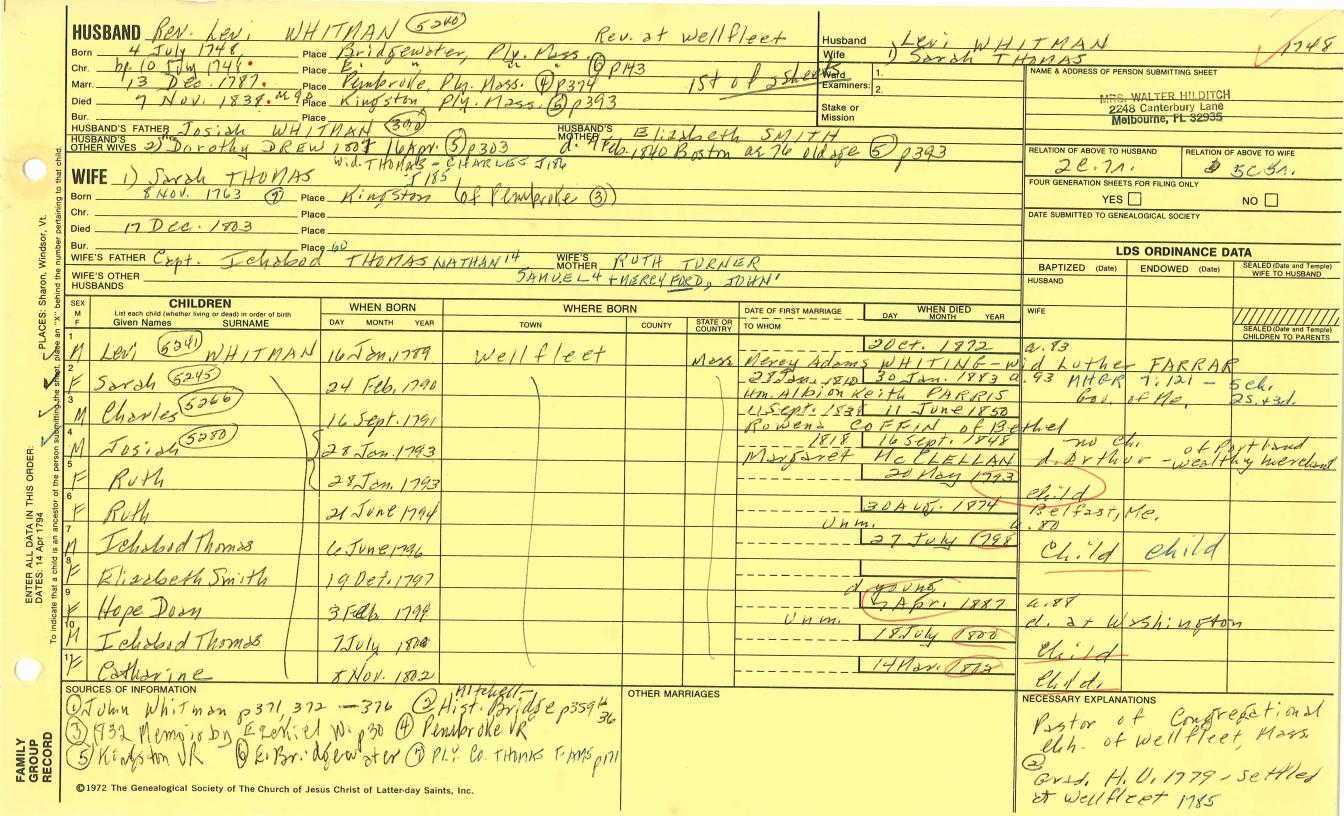 HUSBAND Rev. Levi WHITMAN 5240 Rev. at Wellfleet
Born 4 July 1748 Place Bridgewater, Ply. Mass.
Chr. bp. 10 1748 Place E. " " " 6 p143
Marr. 13 Dec. 1787 Place Pembroke, Ply. Mass. 4 p374 1st of 2 sheets
Died 7 Nov. 1838 Place Kingston, Ply. Mass. 5 p393
Bur. Place
HUSBAND'S FATHER Josiah WHITMAN HUSBAND'S MOTHER Elizabeth SMITH
HUSBAND'S OTHER WIVES 2) Dorothy DREW 1807 16 Apr. 5 p303 d. 9 Feb. 1840 Boston ae 76 old age 5 p393
wid. THOMAS - CHARLES J186
J185
Husband Levi WHITMAN 1748
Wife 1) Sarah THOMAS
Ward 1.
Examiners: 2.
Stake or Mission
NAME & ADDRESS OF PERSON SUBMITTING SHEET
MRS. WALTER HILDITCH
2248 Canterbury Lane
Melbourne, FL 32935
RELATION OF ABOVE TO HUSBAND RELATION OF ABOVE TO WIFE
2C.7r. 5C.5r.
FOUR GENERATION SHEETS FOR FILING ONLY
YES NO
DATE SUBMITTED TO GENEALOGICAL SOCIETY
WIFE 1) Sarah THOMAS
Born 8 Nov. 1763 7 Place Kingston (of Pembroke 3)
Chr. Place
Died 17 Dec. 1803 Place
Bur. Place
WIFE'S FATHER Capt. Ichabod THOMAS NATHAN WIFE'S MOTHER RUTH TURNER
WIFE'S OTHER HUSBANDS SAMUEL + MERCY FORD, JOHN
LDS ORDINANCE DATA
BAPTIZED (Date) ENDOWED (Date) SEALED (Date and Temple) WIFE TO HUSBAND
HUSBAND
WIFE
SEALED (Date and Temple) CHILDREN TO PARENTS
SEX M F CHILDREN List each child (whether living or dead) in order of birth Given Names SURNAME WHEN BORN DAY MONTH YEAR WHERE BORN TOWN COUNTY STATE OR COUNTRY DATE OF FIRST MARRIAGE TO WHOM WHEN DIED DAY MONTH YEAR
1 M Levi 5241 WHITMAN 16 Jan. 1789 Wellfleet Mass 2 Oct. 1872 a. 83
Mercy Adams WHITING - wid Luther FARRAR
2 F Sarah 5245 24 Feb. 1790 28 Jan. 1810 30 Jan. 1883 a. 93 MHGR 7:121 - 5 ch.
Hn. Albion Keith PARRIS Gov. of Me. 2S. + 3d.
3 M Charles 5266 16 Sept. 1791 11 Sept. 1838 11 June 1850
Rowena COFFIN of Bethel
4 M Josiah 5280 28 Jan. 1793 1818 16 Sept. 1848 no ch. of Portland
Margaret McCLELLAN d. Arthur - wealthy merchant
5 F Ruth 28 Jan. 1793 20 May 1793 child
6 F Ruth 21 June 1794 30 Aug. 1874 Belfast, Me.
Unm. a. 80
7 M Ichabod Thomas 6 June 1796 27 July 1798 Child child
8 F Elizabeth Smith 19 Oct. 1797
d young
9 F Hope Doan 3 Feb. 1799 7 Apr. 1887 a. 88
Unm. d. at Washington
10 M Ichabod Thomas 7 July 1800 18 July 1800 Child
11 F Catharine 8 Nov. 1802 14 Mar. 1803 Child.
SOURCES OF INFORMATION
1 John Whitman p 371, 372 - 376 2 Mitchell - Hist. Bridge p359
36
3 1832 Memoir by Ezekiel W. p30 4 Pembroke VR
5 Kingston VR 6 E. Bridgewater 7 PLY. Co. THOMAS FAMS p171
OTHER MARRIAGES
NECESSARY EXPLANATIONS
Pastor of Congregational
Ch. of Wellfleet, Mass
2
Grad. H. U. 1779 - settled
at Wellfleet 1785
©1972 The Genealogical Society of The Church of Jesus Christ of Latter-day Saints, Inc.
FAMILY GROUP RECORD
ENTER ALL DATA IN THIS ORDER:
DATES: 14 Apr 1794
PLACES: Sharon, Windsor, Vt.
To indicate that a child is an ancestor of the person submitting the sheet, place an "X" behind the number pertaining to that child.